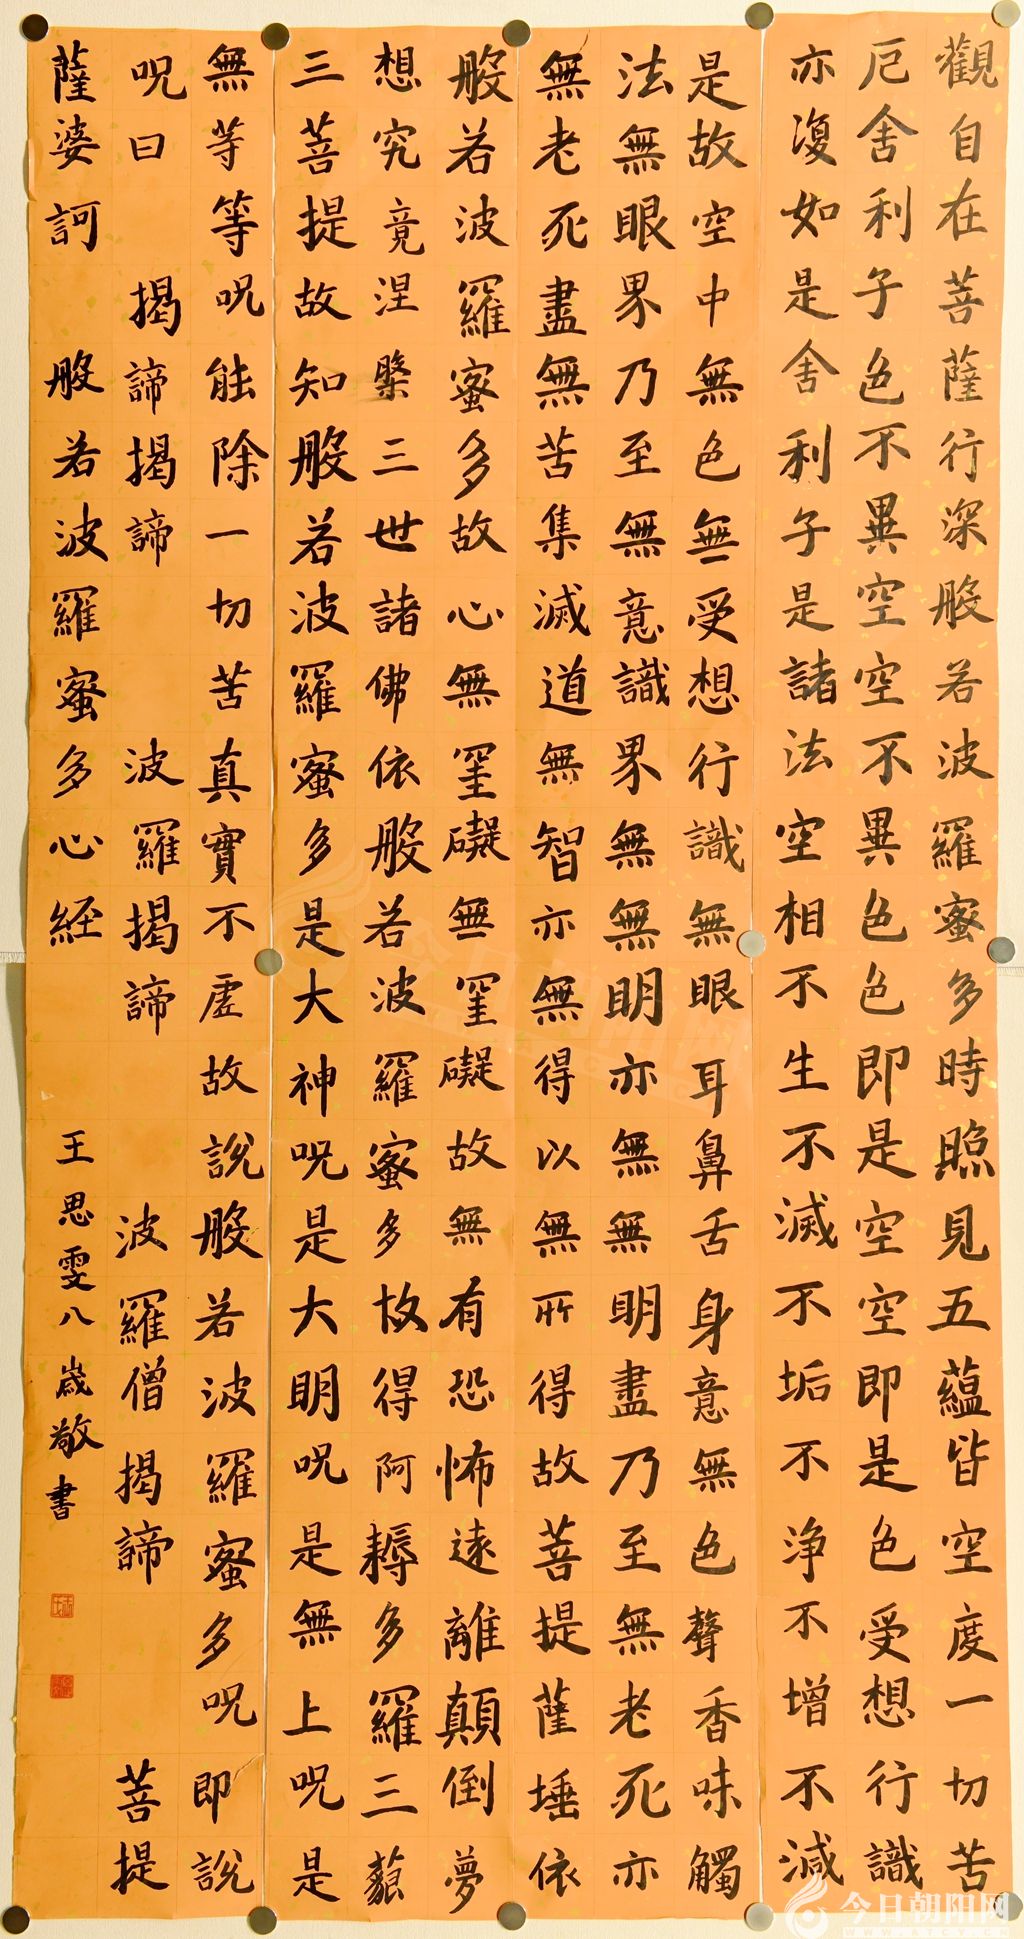 觀自在菩薩行深般若波羅蜜多時照見五蘊皆空度一切苦
厄舍利子色不異空空不異色色即是空空即是色受想行識
亦復如是舍利子是諸法空相不生不滅不垢不淨不增不減
是故空中無色無受想行識無眼耳鼻舌身意無色聲香味觸
法無眼界乃至無意識界無無明亦無無明盡乃至無老死亦
無老死盡無苦集滅道無智亦無得以無所得故菩提薩埵依
般若波羅蜜多故心無罣礙無罣礙故無有恐怖遠離顛倒夢
想究竟涅槃三世諸佛依般若波羅蜜多故得阿耨多羅三藐
三菩提故知般若波羅蜜多是大神咒是大明咒是無上咒是
無等等呪能除一切苦真實不虛故說般若波羅蜜多呪即說
呪曰 揭諦揭諦 波羅揭諦 波羅僧揭諦 菩提
薩婆訶 般若波羅蜜多心経 王思雯八歲敬書
今日朝阳网